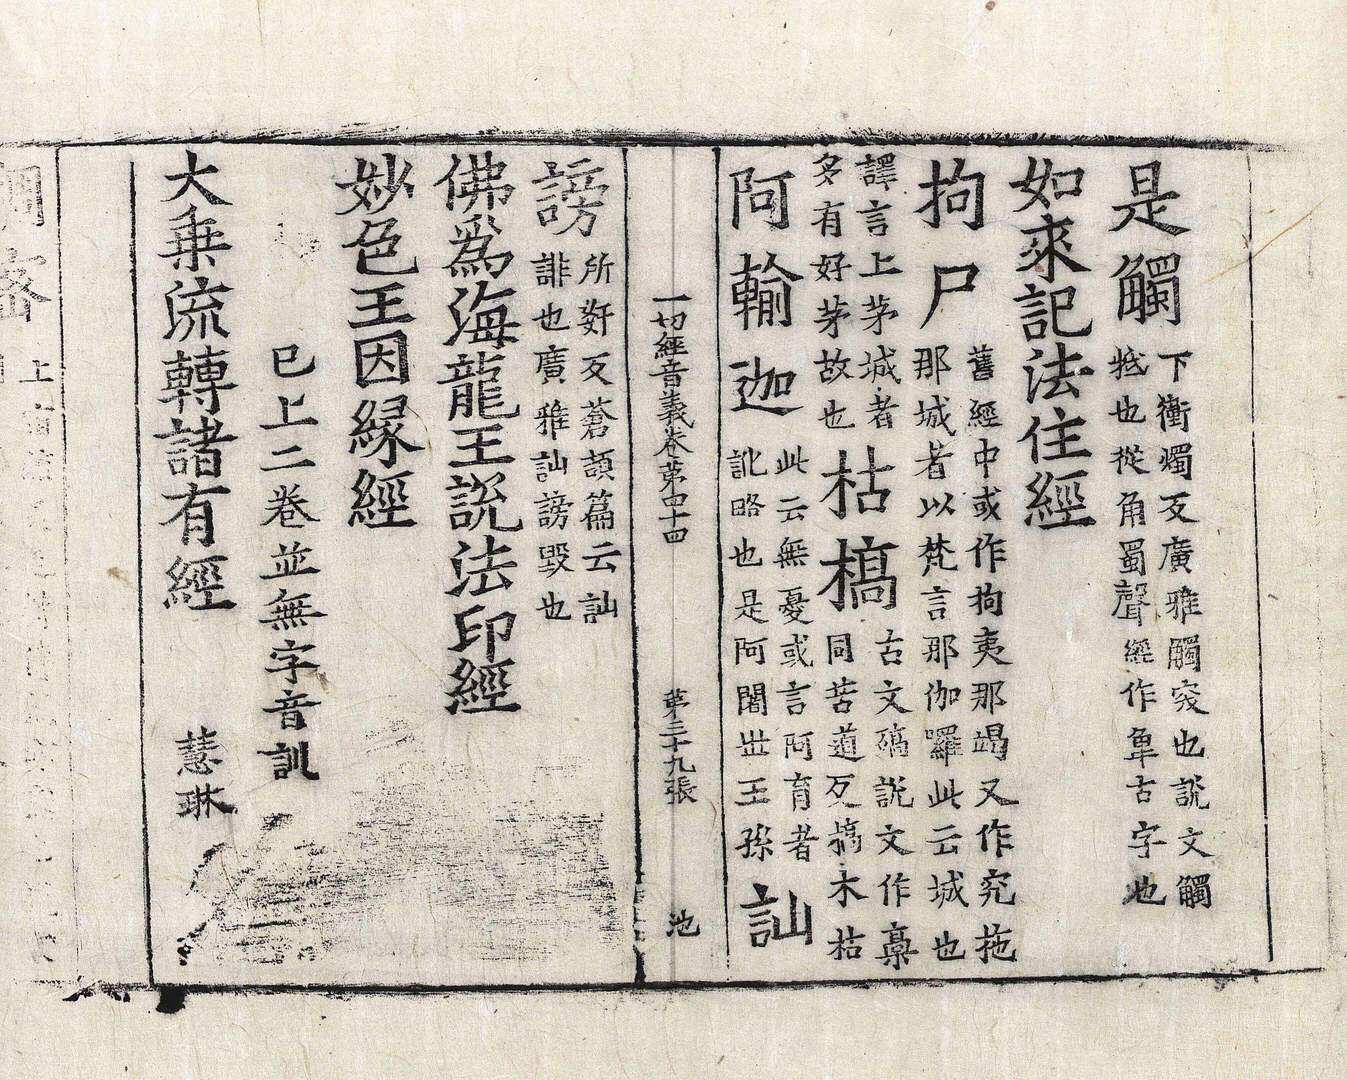 是觸下衝燭反廣雅觸突也説文觸
牴也從角蜀聲經作𧢻古字也
如來記法住經
拘尸舊經中或作拘夷那竭又作究拖
那城者以梵言那伽囉此云城也
譯言上茅城者
多有好茅故也
枯槁古文㱠説文作槀
同苦道反槁木枯
阿輸迦此云無憂或言阿育者
訛略也是阿闍世王孫
訕
一切經音義卷第四十四
第三十九張
池
謗所姧反蒼頡篇云訕
誹也廣雅訕謗毀也
佛為海龍王説法印經
妙色王因緣經
已上二卷並無字音訓
大乗流轉諸有經
慧琳